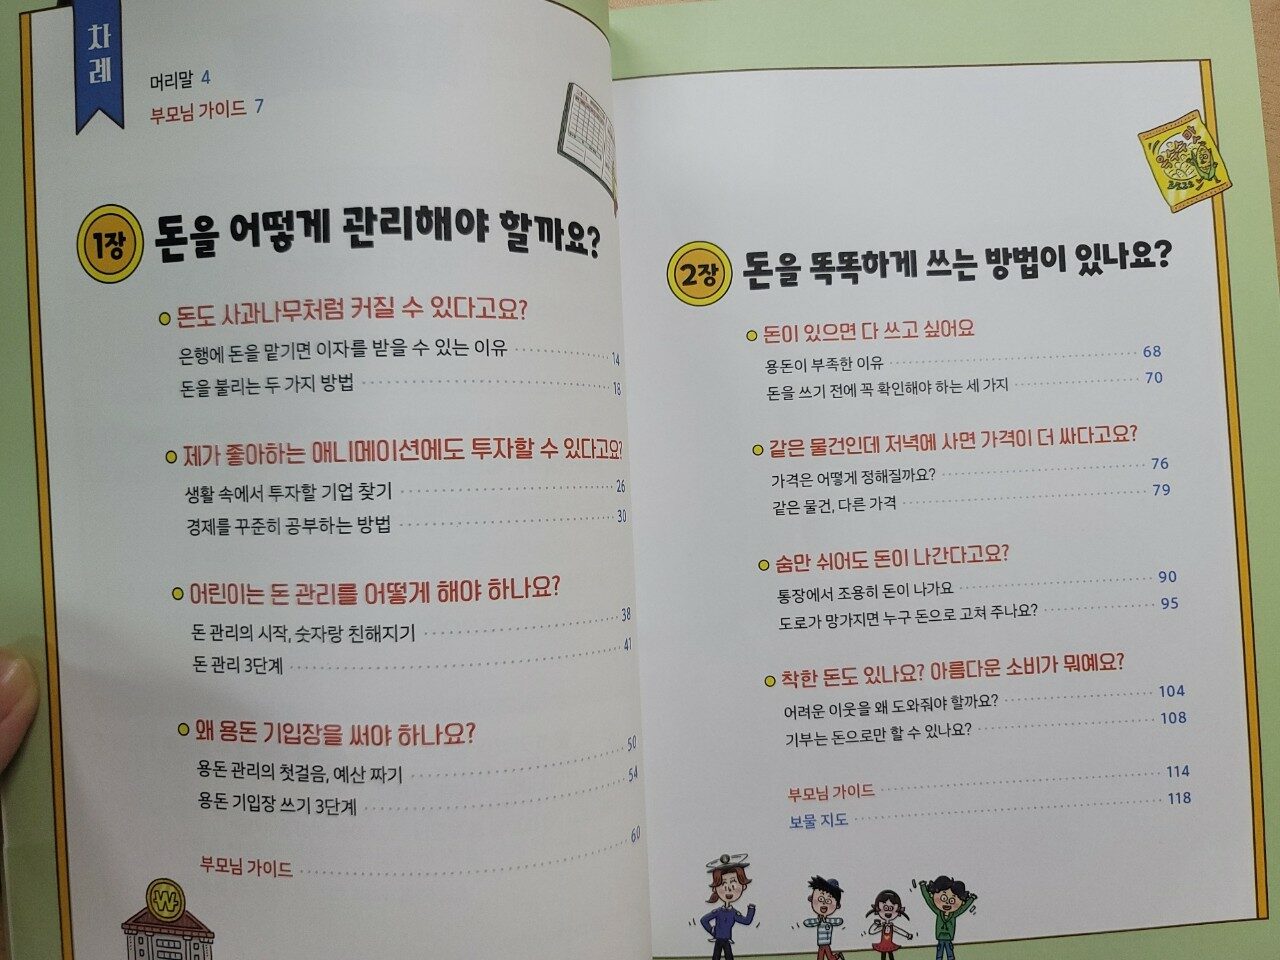 차례
머리말 4
부모님 가이드 7
1장 돈을 어떻게 관리해야 할까요?
돈도 사과나무처럼 커질 수 있다고요?
은행에 돈을 맡기면 이자를 받을 수 있는 이유 14
돈을 불리는 두 가지 방법 18
제가 좋아하는 애니메이션에도 투자할 수 있다고요?
생활 속에서 투자할 기업 찾기 26
경제를 꾸준히 공부하는 방법 30
어린이는 돈 관리를 어떻게 해야 하나요?
돈 관리의 시작, 숫자랑 친해지기 38
돈 관리 3단계 41
왜 용돈 기입장을 써야 하나요?
용돈 관리의 첫걸음, 예산 짜기 50
용돈 기입장 쓰기 3단계 54
부모님 가이드 60
₩
2장 돈을 똑똑하게 쓰는 방법이 있나요?
돈이 있으면 다 쓰고 싶어요
용돈이 부족한 이유 68
돈을 쓰기 전에 꼭 확인해야 하는 세 가지 70
같은 물건인데 저녁에 사면 가격이 더 싸다고요?
가격은 어떻게 정해질까요? 76
같은 물건, 다른 가격 79
숨만 쉬어도 돈이 나간다고요?
통장에서 조용히 돈이 나가요 90
도로가 망가지면 누구 돈으로 고쳐 주나요? 95
착한 돈도 있나요? 아름다운 소비가 뭐예요?
어려운 이웃을 왜 도와줘야 할까요? 104
기부는 돈으로만 할 수 있나요? 108
부모님 가이드 114
보물 지도 118